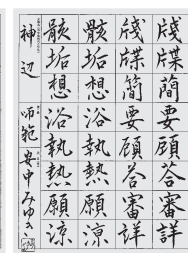 牋牒簡要顧答審詳
牋牒簡要顧荅審詳
骸垢想浴執熱願凉
骸垢想浴執熱願涼
神辺 師範 安中みゆき